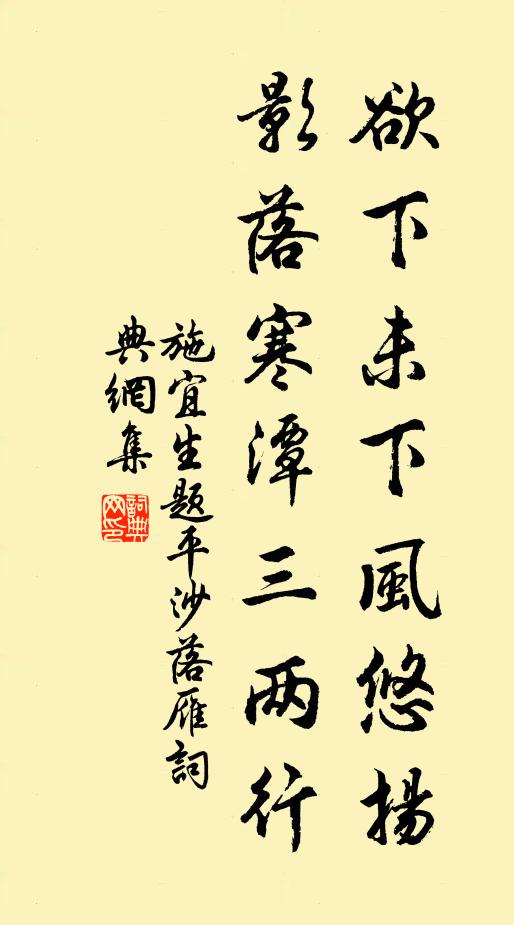 欲下未下風悠揚
影落寒潭三两行
施宜生题平沙落雁詞
典網集
詞典網印